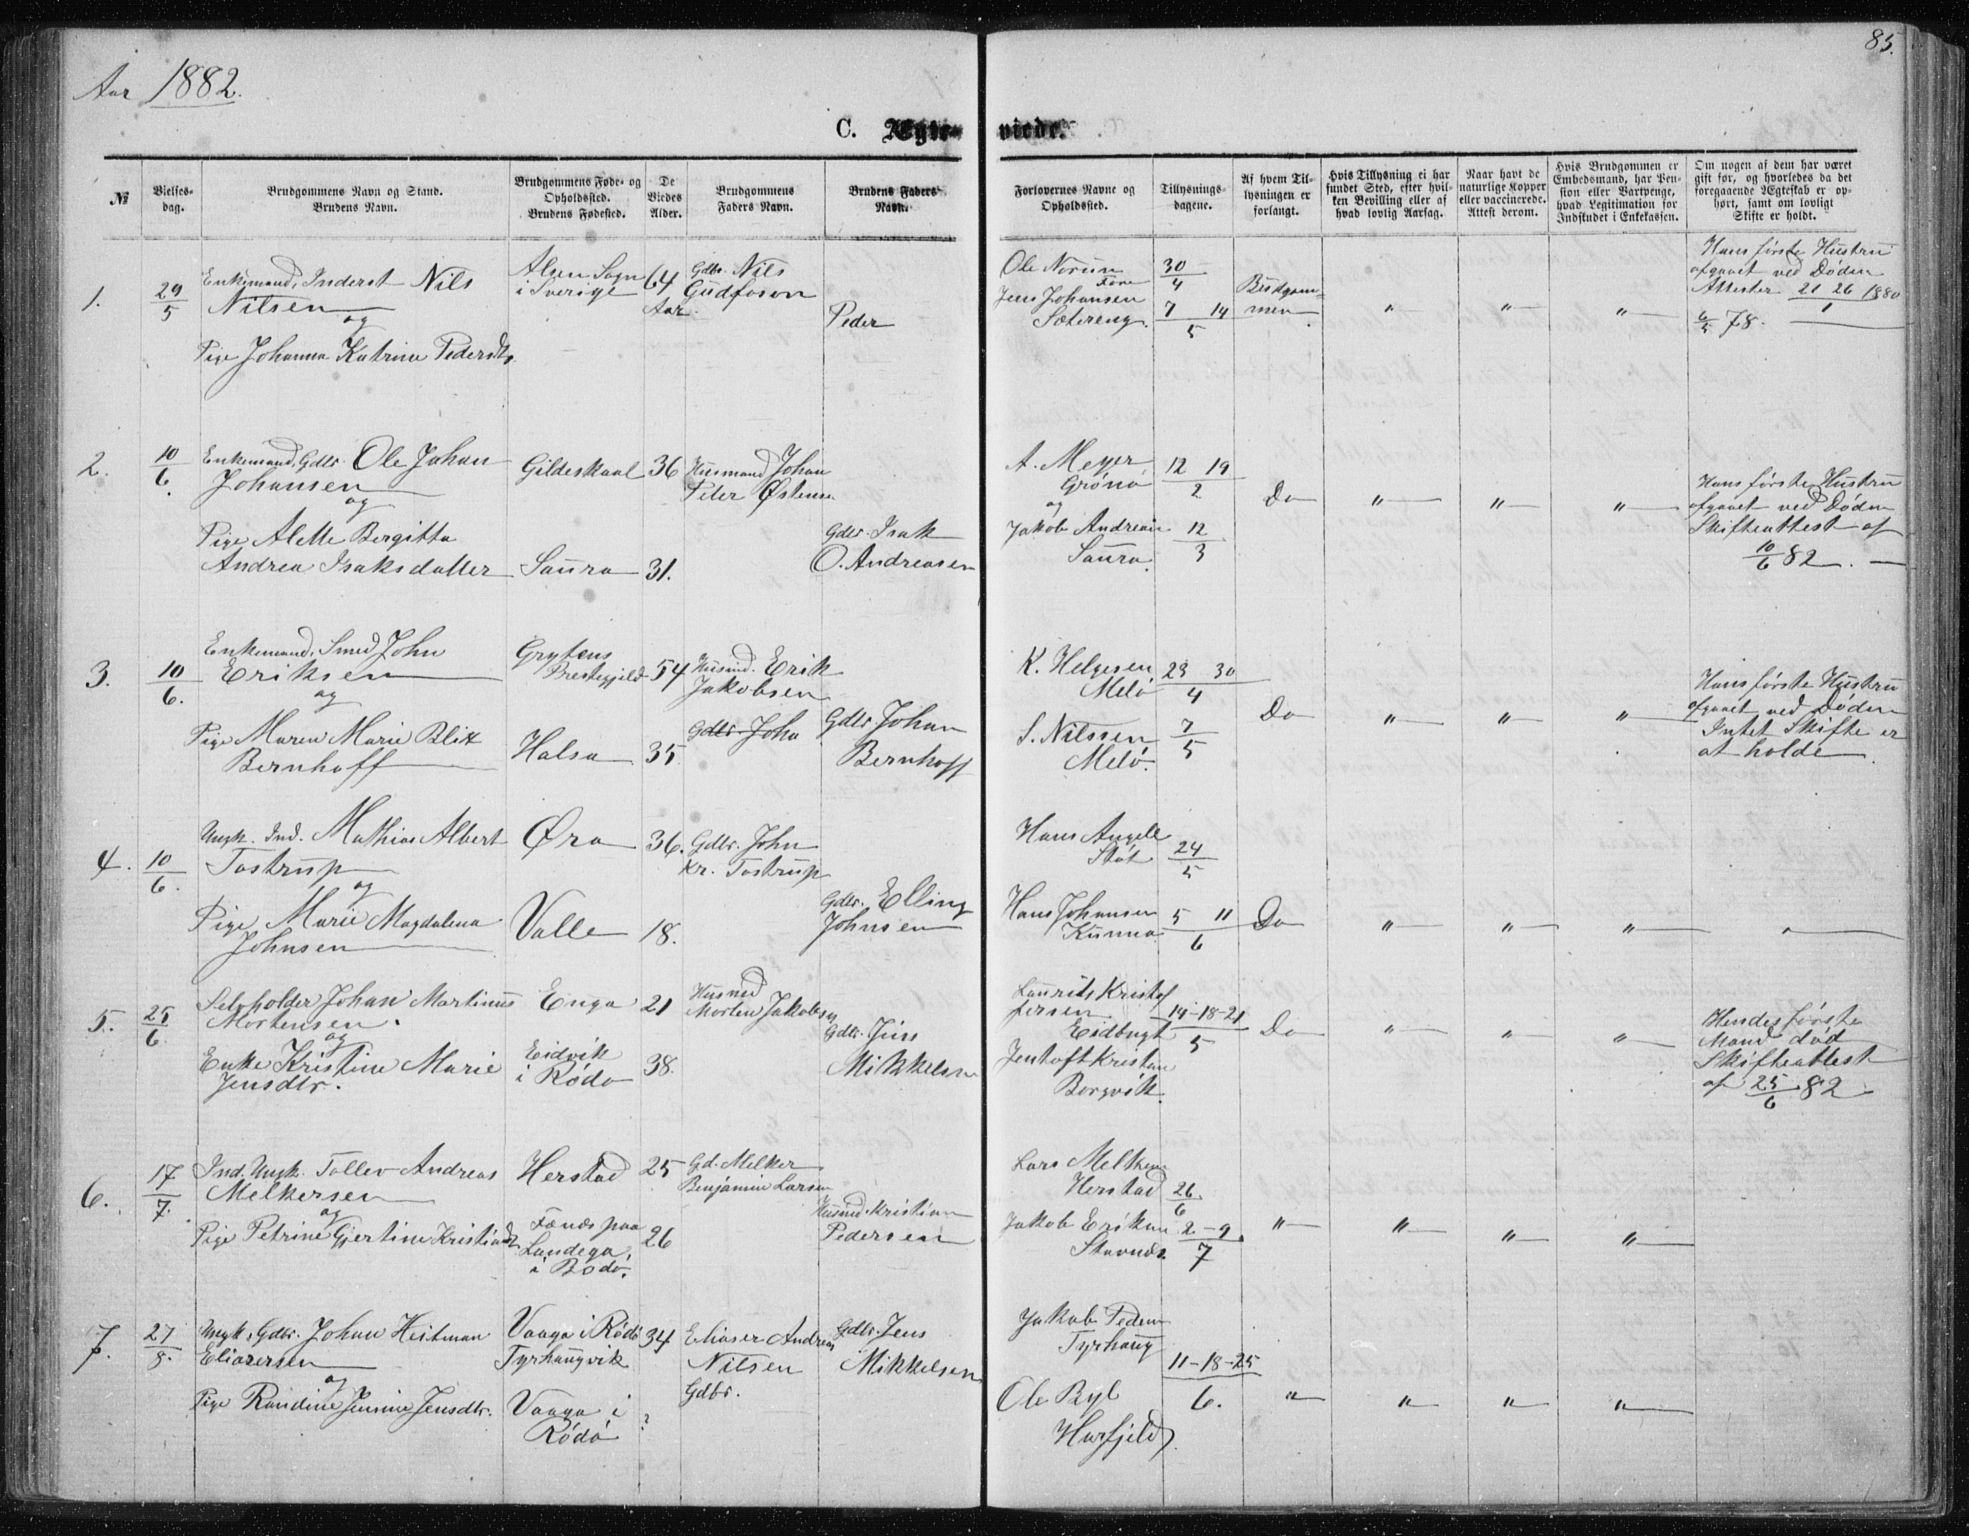 85.
Aar 1882.
C. Ægte- viede.
№
Vielses-
dag.
Brudgommens Navn og Stand.
Brudens Navn.
Brudgommens Føde- og
Opholdssted.
Brudens Fødested.
De
Viedes
Alder.
Brudgommens
Faders Navn.
Brudens Faders
Navn.
Forlovernes Navne og
Opholdssted.
Tillysnings-
dagene.
Af hvem Til-
lysningen er
forlangt.
Hvis Tillysning ei har
fundet Sted, efter hvil-
ken Bevilling eller af
hvad lovlig Aarsag.
Naar havt de
naturlige Kopper
eller vaccinerede.
Attest derom.
Hvis Brudgommen er
Embedsmand, har Pen-
sion eller Vartpenge,
hvad Legitimation for
Indskudet i Enkekassen.
Om nogen af dem har været
gift før, og hvorledes da det
foregaaende Ægteskab er op-
hørt, samt om lovligt
Skifte er holdt.
1.
29/5
Enkemand, Inderst Nils
Nilsen
og
Pige Johanna Katrine Pedersdtr.
Alsen Sogn
i Sverige
64
Aar.
Gdbr. Nils
Gudfason
Peder
Ole Norum
Fore
Jens Johansen
Sætereng.
30/4
7 14/5
Brudgom-
men
" " "
Hans første Hustru
afgaaet ved Døden
Attester 21 26/1 1880
6/5 78.
2.
10/6.
Enkemand, Gdbr. Ole Johan
Johansen
og
Pige Alette Bergitta
Andrea Isaksdatter
Gildeskaal
Saura
36
31.
Husmand Johan
Peter Østensen
Gdbr. Isak
O. Andreasen
A. Meyer
Grønø
og
Jakob Andreasen
Saura.
12 19/2
12/3
Do
" " "
Hans første Hustru
afgaaet ved Døden
Skifteattest af
10/6 82.
3.
10/6.
Enkemand, Smed John
Eriksen
og
Pige Maren Marie Blix
Bernhoff
Grytens
Prestegjeld
Halsa
54
35
Husmd. Erik
Jakobsen
Gdbr. John
Gdbr. Johan
Bernhoff
K. Helgesen
Melø
S. Nilssen
Melø.
23 30/4
7/5
Do
" " "
Hans første Hustru
afgaaet ved Døden
Intet Skifte er
at holde
4.
10/6.
Ungk. Ind. Mathias Albert
Tostrup
og
Pige Marie Magdalena
Johnsen
Øra
Valle
36.
18.
Gdbr. John
Kr. Tostrup
Gdbr. Elling
Johnsen
Hans Angell
Støt
Hans Johansen
Kunna
24/5
5 11/6
Do
" " " "
5.
25/6
Selvholder Johan Martinus
Mortensen.
og
Enke Kristine Marie
Jensdtr.
Enga
Eidvik
i Rødø
21
38.
Husmd
Morten Jakobsen
Gdbr. Jens
Mikkelsen
Laurits Kristof
fersen
Eidbugt
Jentoft Kristian
Borgvik.
14-18-21/5
Do
" " "
Hendes første
Mand død
Skifteattest
af 25/6 82
6.
17/7.
Ind. Ungk. Tollev Andreas
Melkersen
og
Pige Petrine Gjertine Kristiansd
Herstad
Fænes paa
Landego,
i Bodø.
25
26
Gd. Melker
Benjamin Larsen
Husmd Kristian
Pedersen
Lars Melkersen
Herstad
Jakob Eriksen
Stavnds.
26/6
2-9/7
" " " "
7.
27/8.
Ungk, Gdbr. Johan Heitman
Eliasersen
og
Pige Randine Jensine Jensdtr.
Vaaga i Rødø
Tyrhaugvik
Vaaga i
Rødø
34
?
Eliaser Andreas
Nilsen
Gdbr.
Gdbr. Jens
Mikkelsen
Jakob Pedersen
Tyrhaug
Ole Ryl
Harfjeld.
11-18-25/6.
" " " "